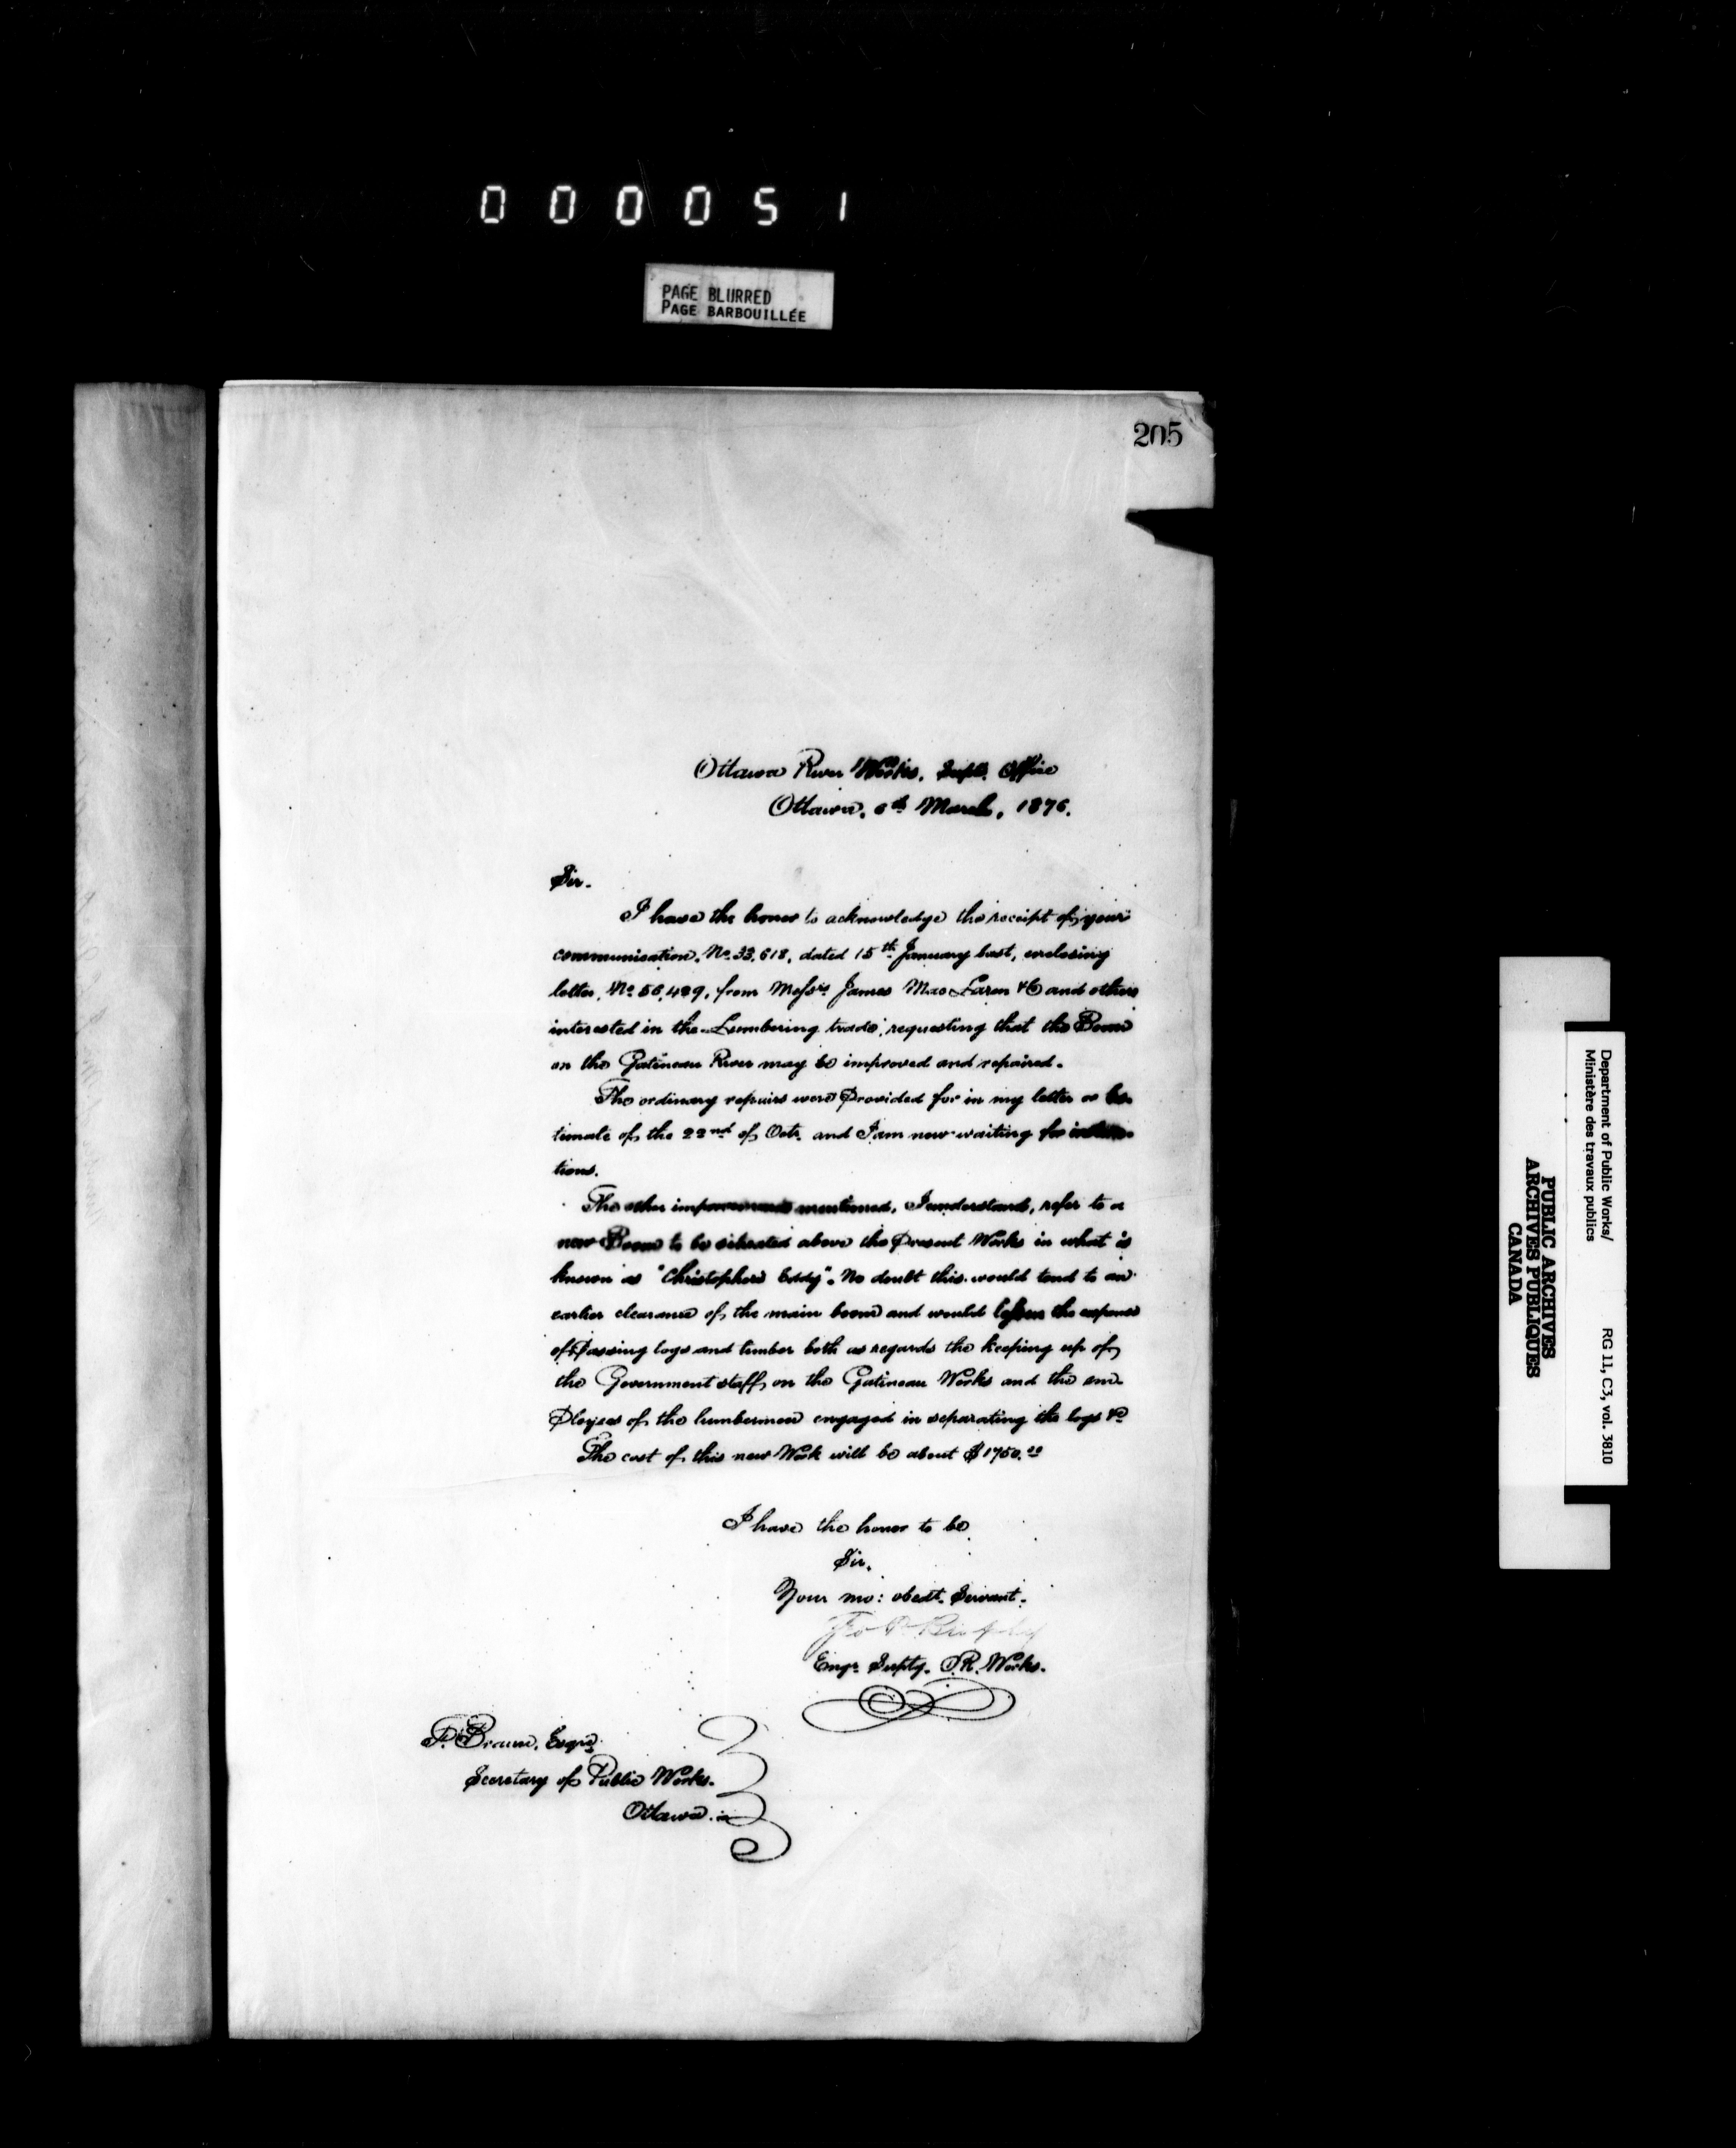 000051
PAGE BLURRED
PAGE BARBOUILLÉE
205
Ottawa River Works, Supt. Office
Ottawa, 6th March, 1876.
Sir.
I have the honor to acknowledge the receipt of your
communication, No. 33,618, dated 15th January last, enclosing
letter, No. 56,489, from Messrs James MacLaren & Co and others
interested in the Lumbering trade, requesting that the Boom
on the Gatineau River may be improved and repaired.
The ordinary repairs were Provided for in my letter or Es-
timate of the 22nd of Octr. and I am now waiting for instruc-
tions.
The other improvements mentioned, I understand, refer to a
new Boom to be situated above the Present Works in what is
known as "Christophers Eddy". No doubt this would tend to an
earlier clearance of the main boom and would lessen the expense
of Passing logs and timber both as regards the keeping up of
the Government staff on the Gatineau Works and the em-
Ployees of the lumbermen engaged in separating the logs &c
The cost of this new Work will be about $1750.00
I have the honor to be
Sir,
Your mo: obedt. Servant.
Engr. Supty. O.R. Works.
F. Braun, Esqre
Secretary of Public Works.
Ottawa.
Department of Public Works/
Ministère des travaux publics
RG 11, C3, vol. 3810
PUBLIC ARCHIVES
ARCHIVES PUBLIQUES
CANADA